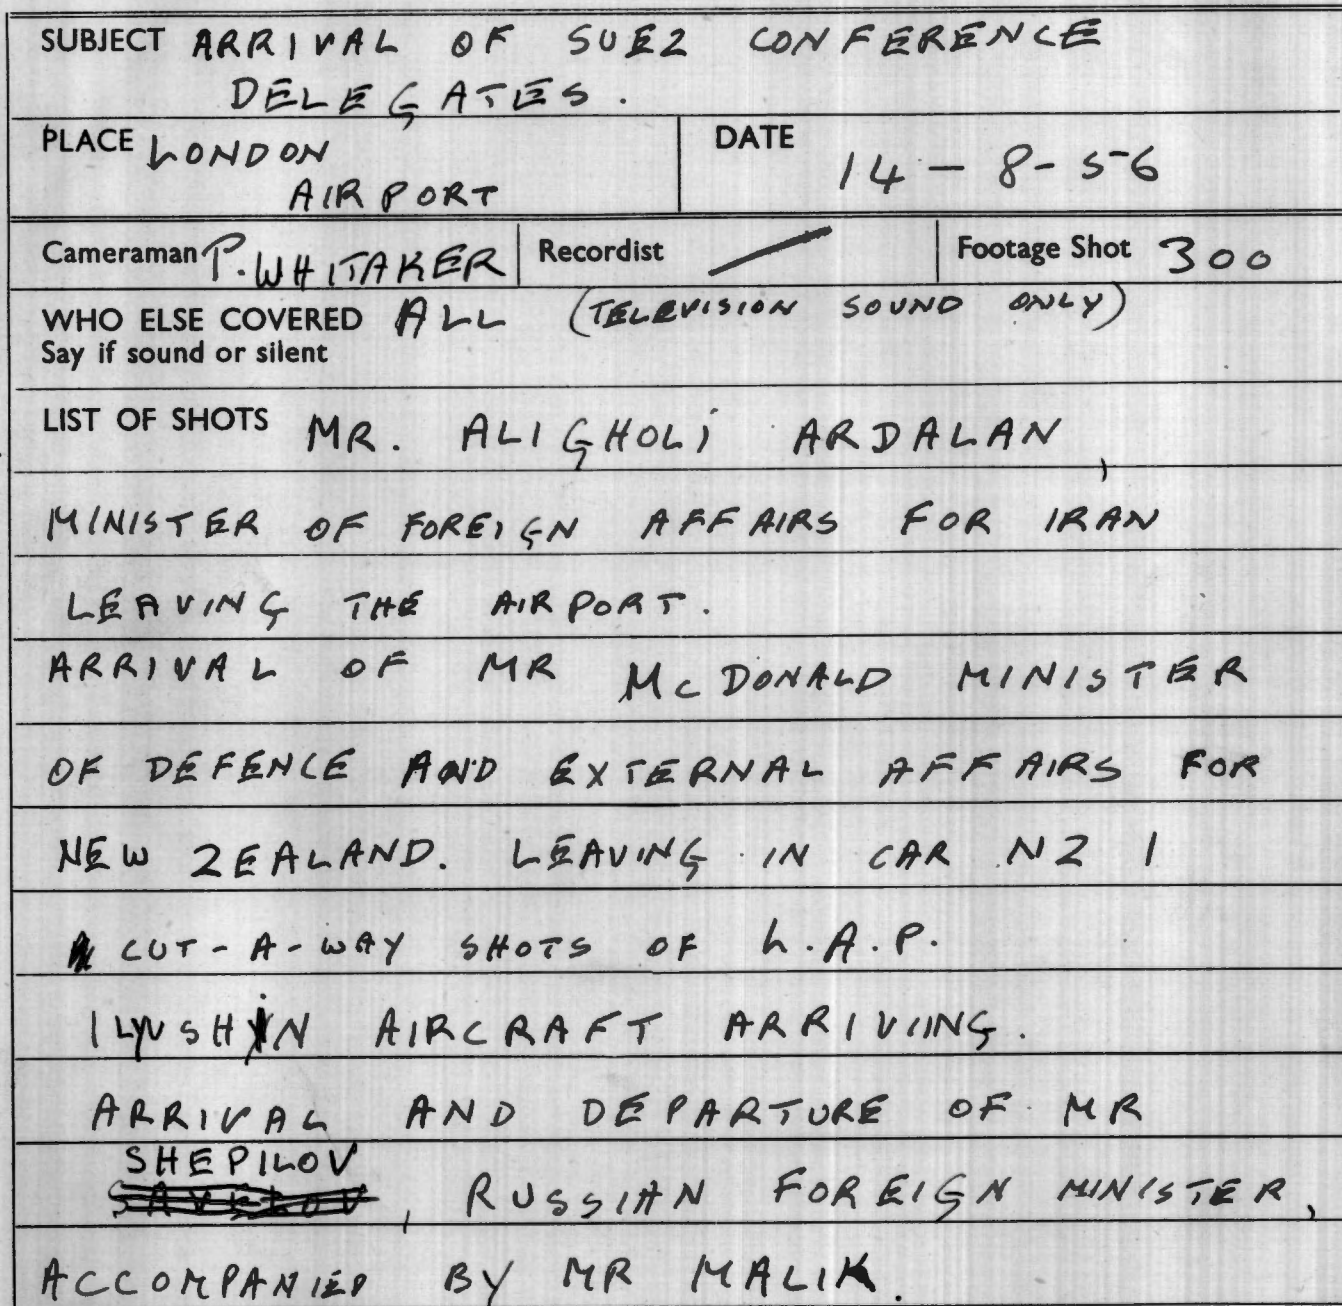 SUBJECT ARRIVAL OF SUEZ CONFERENCE
DELEGATES.
PLACE LONDON
AIRPORT
DATE 14-8-56
Cameraman P. WHITAKER Recordist / Footage Shot 300
WHO ELSE COVERED ALL (TELEVISION SOUND ONLY)
Say if sound or silent
LIST OF SHOTS MR. ALIGHOLI ARDALAN,
MINISTER OF FOREIGN AFFAIRS FOR IRAN
LEAVING THE AIRPORT.
ARRIVAL OF MR McDONALD MINISTER
OF DEFENCE AND EXTERNAL AFFAIRS FOR
NEW ZEALAND. LEAVING IN CAR NZ 1
CUT-A-WAY SHOTS OF L.A.P.
ILYUSHIN AIRCRAFT ARRIVIING.
ARRIVAL AND DEPARTURE OF MR
SHEPILOV
, RUSSIAN FOREIGN MINISTER,
ACCOMPANIED BY MR MALIK.